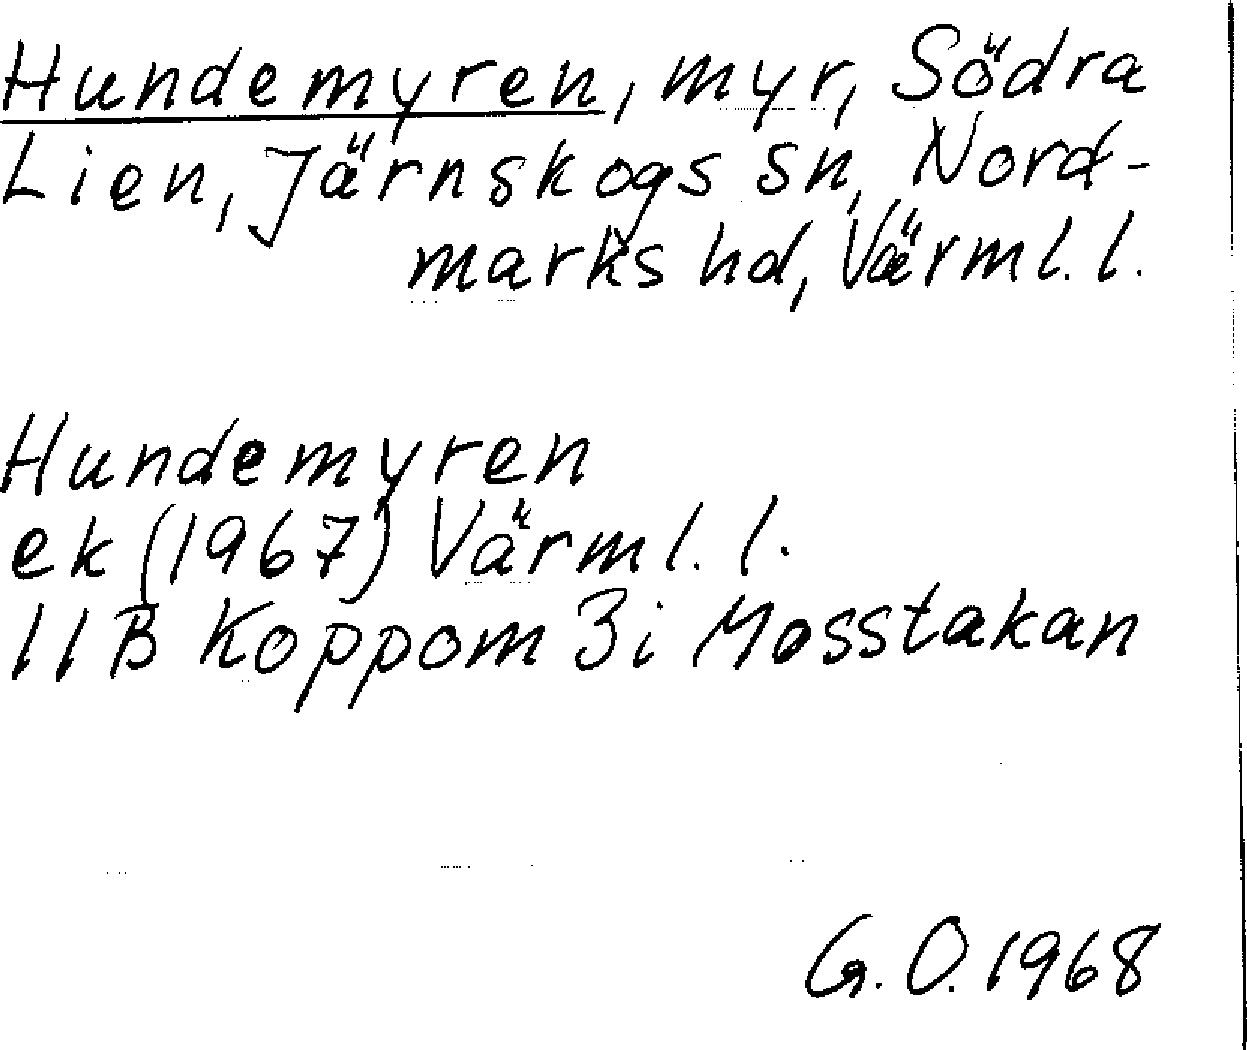 Hundemyren, myr, Södra
Lien, Järnskogs sn, Nord-
marks hd, Värml. l.
Hundemyren
ek (1967) Värml. l.
11B Koppom 3i Mosstakan
G. O. 1968